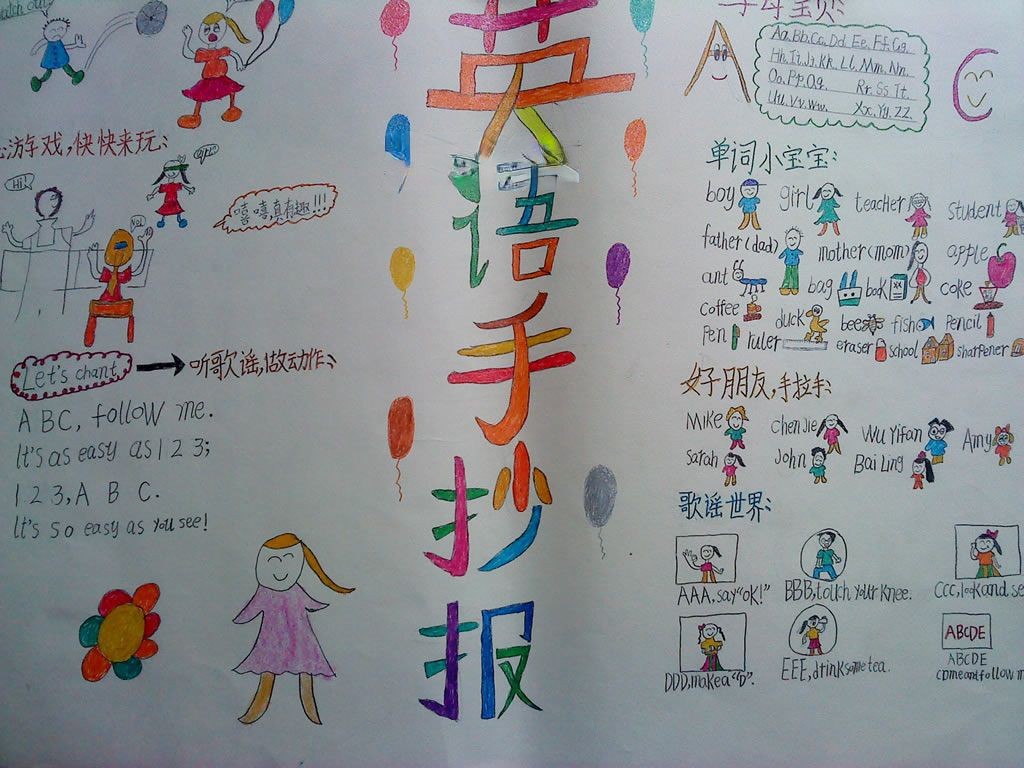 Watch out!
游戏,快快来玩:
Hi!
嘻嘻,真有趣!!!
Let's chant
听歌谣,做动作:
ABC, follow me.
It's as easy as 1 2 3;
1 2 3, A B C.
It's so easy as you see!
英语手抄报
字母宝贝:
A
Aa. Bb. Cc. Dd. Ee. Ff. Gg.
Hh. Ii. Jj. Kk. Ll. Mm. Nn.
Oo. Pp. Qq. Rr. Ss. Tt.
Uu. Vv. Ww. Xx. Yy. Zz
C
单词小宝宝:
boy girl teacher student
father(dad) mother(mom) apple
ant bag book coke
coffee duck bee fish Pencil
Pen ruler eraser school sharpener
好朋友,手拉手:
Mike chen Jie Wu Yifan Amy
sarah John Bai Ling
歌谣世界:
AAA, say "ok!" BBB, touch your knee. CCC, look and se
DDD, make a "D". EEE, drink some tea.
ABCDE
ABCDE
CD me and follow m